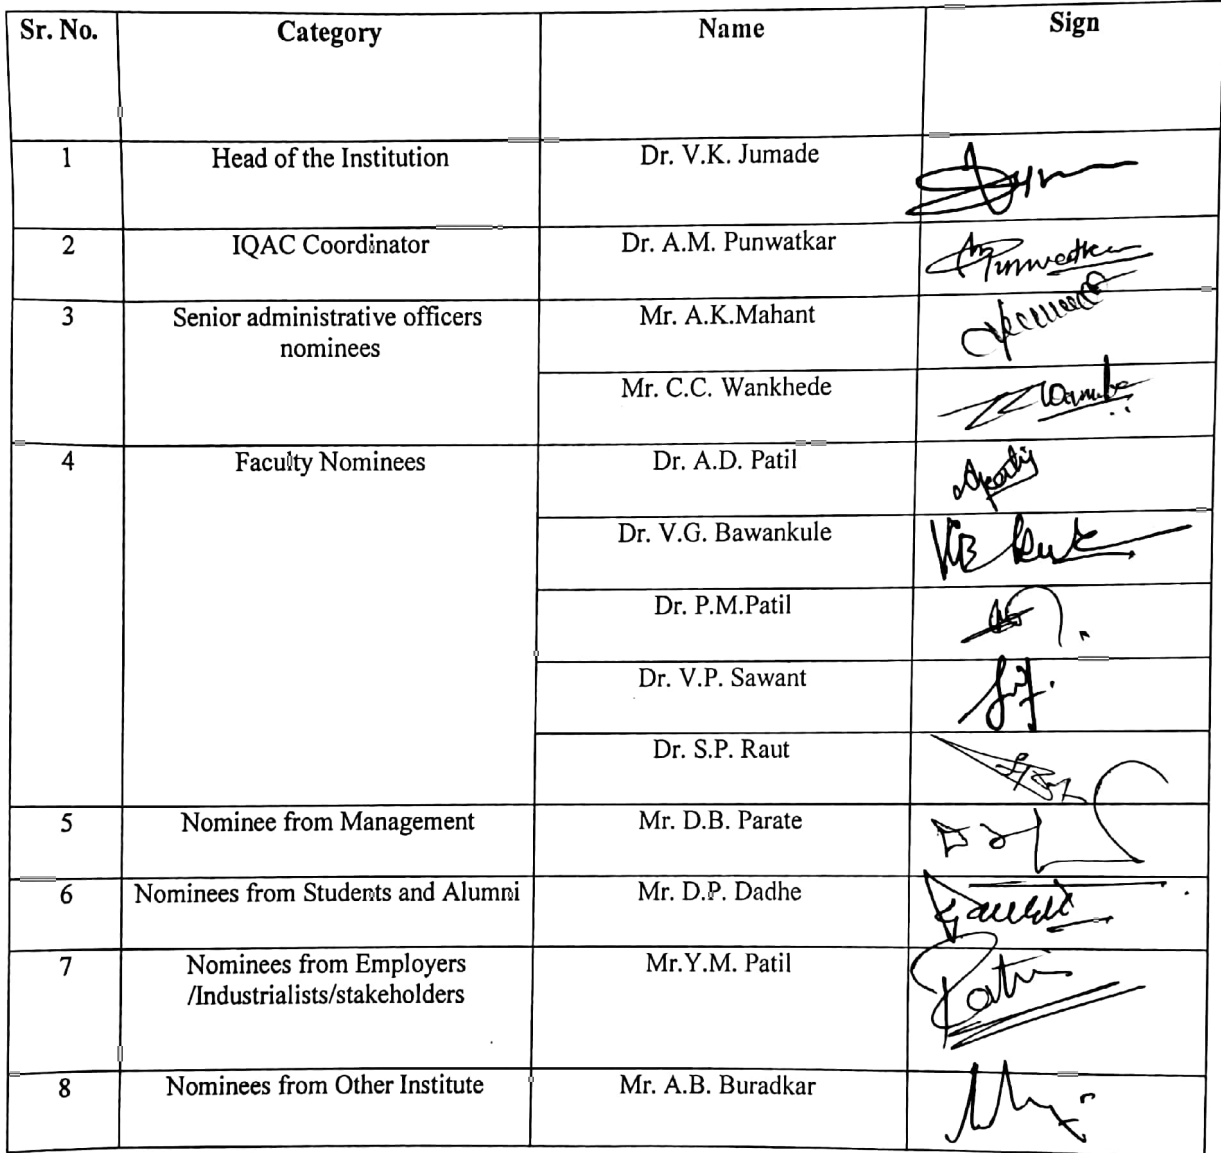 Sr. No. Category Name Sign
1 Head of the Institution Dr. V.K. Jumade
2 IQAC Coordinator Dr. A.M. Punwatkar
3 Senior administrative officers Mr. A.K.Mahant
nominees
Mr. C.C. Wankhede
4 Faculty Nominees Dr. A.D. Patil
Dr. V.G. Bawankule
Dr. P.M.Patil
Dr. V.P. Sawant
Dr. S.P. Raut
5 Nominee from Management Mr. D.B. Parate
6 Nominees from Students and Alumni Mr. D.P. Dadhe
7 Nominees from Employers Mr.Y.M. Patil
/Industrialists/stakeholders
8 Nominees from Other Institute Mr. A.B. Buradkar